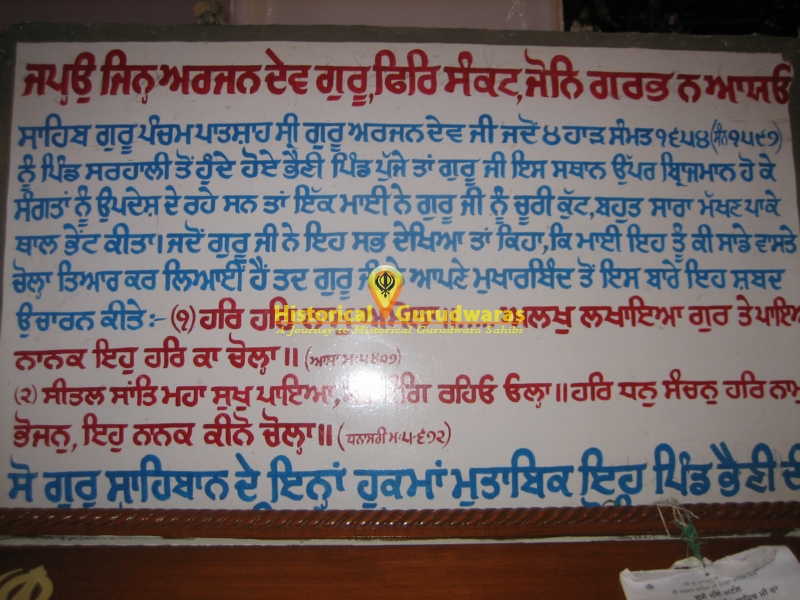 ਜਪ੍ਹਉ ਜਿਨ੍ਹ ਅਰਜਨ ਦੇਵ ਗੁਰੂ, ਫਿਰਿ ਸੰਕਟ, ਜੋਨਿ ਗਰਭ ਨ ਆਯਓ
ਸਾਹਿਬ ਗੁਰੂ ਪੰਚਮ ਪਾਤਸ਼ਾਹ ਸ੍ਰੀ ਗੁਰੂ ਅਰਜਨ ਦੇਵ ਜੀ ਜਦੋਂ ੪ ਹਾੜ ਸੰਮਤ ੧੬੫੪ (ਸੰਨ ੧੫੯੭)
ਨੂੰ ਪਿੰਡ ਸਰਹਾਲੀ ਤੋਂ ਹੁੰਦੇ ਹੋਏ ਭੈਣੀ ਪਿੰਡ ਪੁੱਜੇ ਤਾਂ ਗੁਰੂ ਜੀ ਇਸ ਸਥਾਨ ਉੱਪਰ ਬ੍ਰਿਾਜਮਾਨ ਹੋ ਕੇ
ਸੰਗਤਾਂ ਨੂੰ ਉਪਦੇਸ਼ ਦੇ ਰਹੇ ਸਨ ਤਾਂ ਇੱਕ ਮਾਈ ਨੇ ਗੁਰੂ ਜੀ ਨੂੰ ਚੂਰੀ ਕੁੱਟ, ਬਹੁਤ ਸਾਰਾ ਮੱਖਣ ਪਾਕੇ
ਥਾਲ ਭੇਟ ਕੀਤਾ। ਜਦੋਂ ਗੁਰੂ ਜੀ ਨੇ ਇਹ ਸਭ ਦੇਖਿਆ ਤਾਂ ਕਿਹਾ, ਕਿ ਮਾਈ ਇਹ ਤੂੰ ਕੀ ਸਾਡੇ ਵਾਸਤੇ
ਚੋਲ੍ਹਾ ਤਿਆਰ ਕਰ ਲਿਆਈਂ ਹੈਂ ਤਦ ਗੁਰੂ ਜੀ ਨੇ ਆਪਣੇ ਮੁਖਾਰਬਿੰਦ ਤੋਂ ਇਸ ਬਾਰੇ ਇਹ ਸ਼ਬਦ
ਉਚਾਰਨ ਕੀਤੇ :- (੧) ਹਰਿ ਲਖਾਇਆ ਗੁਰ ਤੇ
Historical Gurudwaras
A Journey to Historical Gurudwara Sahibs
ਨਾਨਕ ਇਹੁ ਹਰਿ ਕਾ ਚੋਲ੍ਹਾ॥ (ਆਸਾ ਮ:੫ ੪੦੭)
(੨) ਸੀਤਲ ਸਾਂਤਿ ਮਹਾ ਸੁਖੁ ਪਾਇਆ, ਰਹਿਓ ਓਲ੍ਹਾ॥ ਹਰਿ ਧਨੁ ਸੰਚਨੁ ਹਰਿ
ਭੋਜਨੁ, ਇਹੁ ਨਨਕ ਕੀਨੋ ਚੋਲ੍ਹਾ॥ (ਧਨਾਸਰੀ ਮ:੫-੬੭੨)
ਸੋ ਗੁਰੂ ਸਾਹਿਬਾਨ ਦੇ ਇਨ੍ਹਾਂ ਹੁਕਮਾਂ ਮੁਤਾਬਿਕ ਇਹ ਪਿੰਡ ਭੈਣੀ ਦੀ